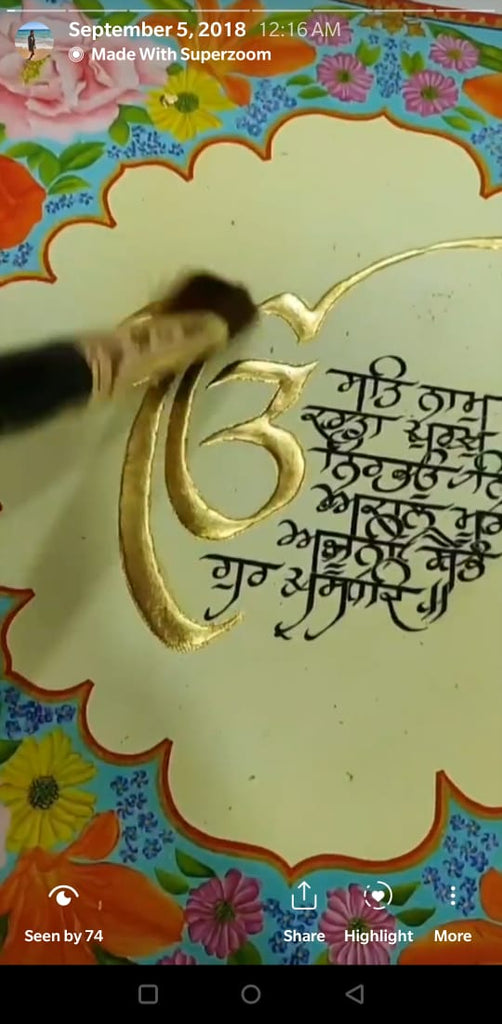 September 5, 2018 12:16 AM
Made With Superzoom
ੴ
ਸਤਿ ਨਾਮੁ
ਕਰਤਾ ਪੁਰਖੁ
ਨਿਰਭਉ
ਅਕਾਲ
ਅਜੂਨੀ ਸੈਭੰ
ਗੁਰ ਪ੍ਰਸਾਦਿ॥
Seen by 74
Share
Highlight
More